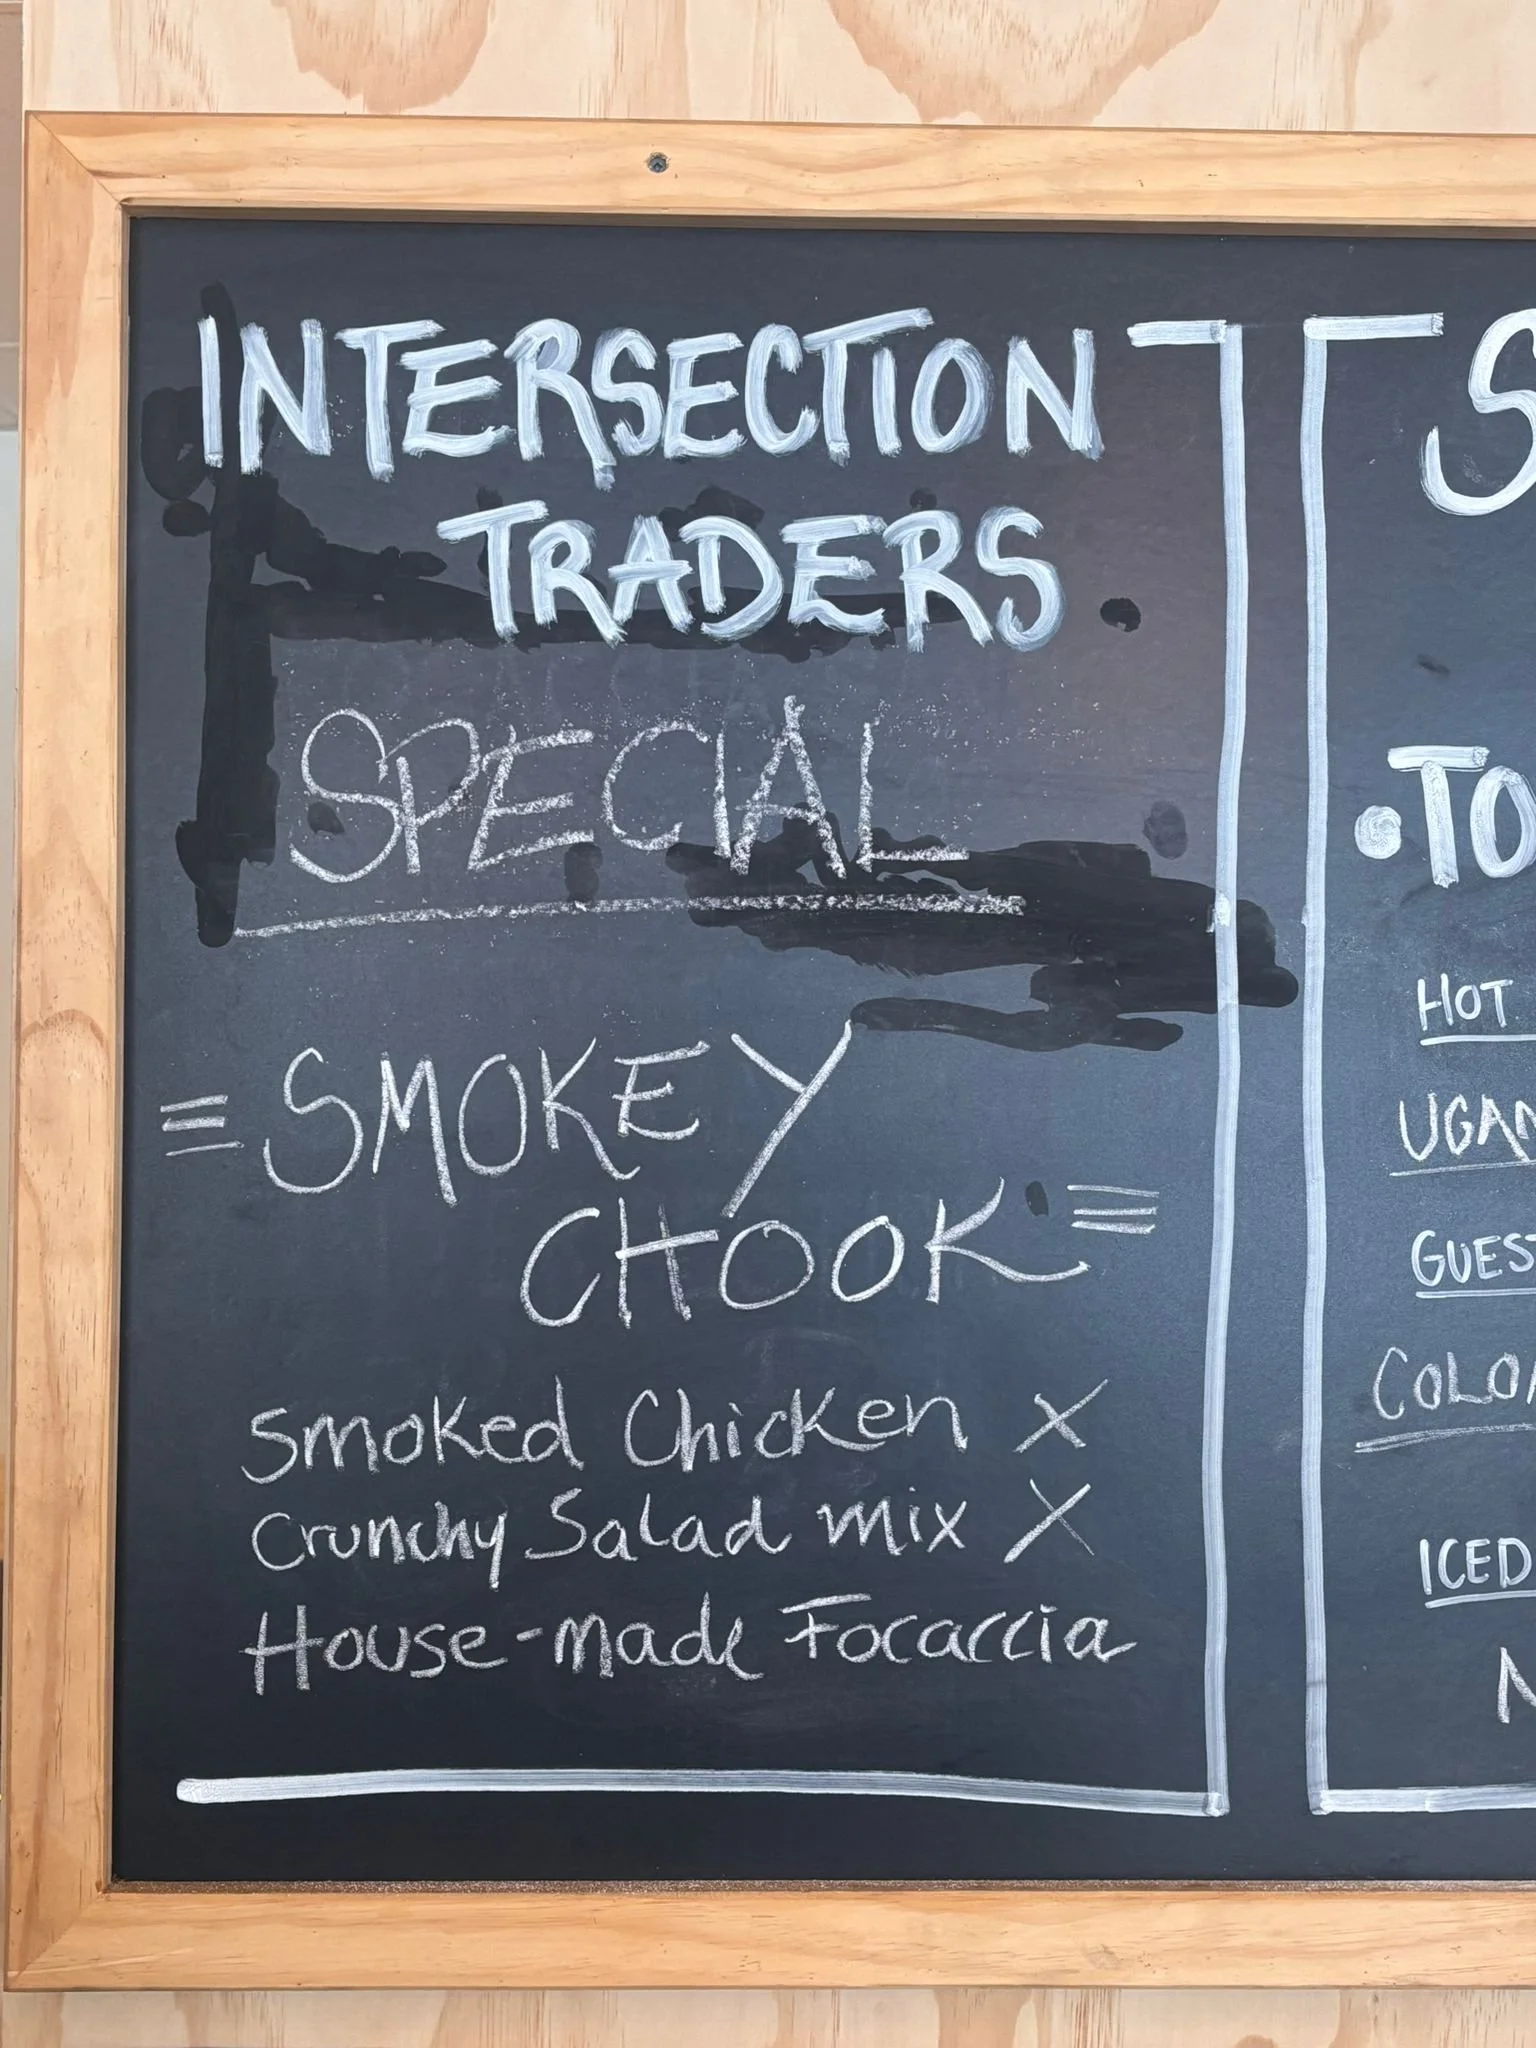 INTERSECTION
TRADERS
SPECIAL
SMOKEY
CHOOK
Smoked Chicken X
Crunchy Salad mix X
House-made Focaccia
S
TO
HOT
UGAN
GUEST
COLO
ICED
N